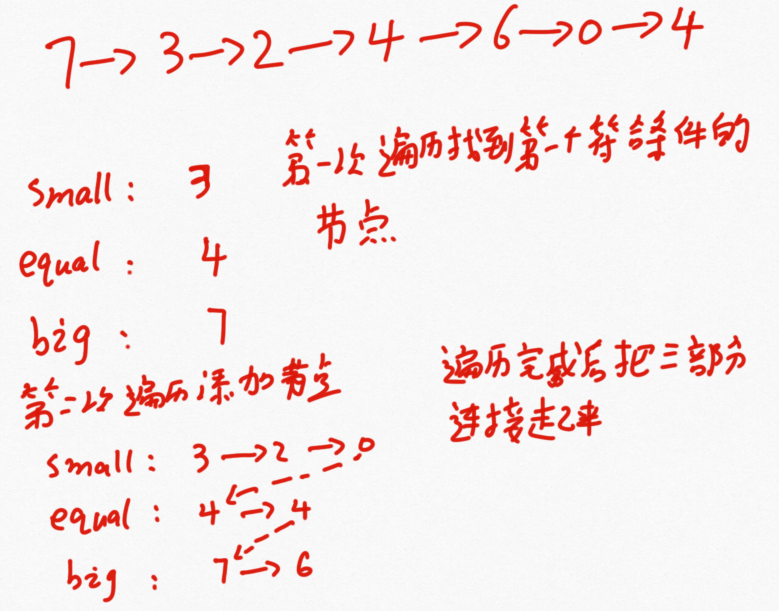 7→3→2→4→6→0→4
第一次遍历找到第一个符合条件的
节点
small: 3
equal: 4
big: 7
第二次遍历添加节点
遍历完成后把三部分
连接起来
small: 3→2→0
equal: 4→4
big: 7→6